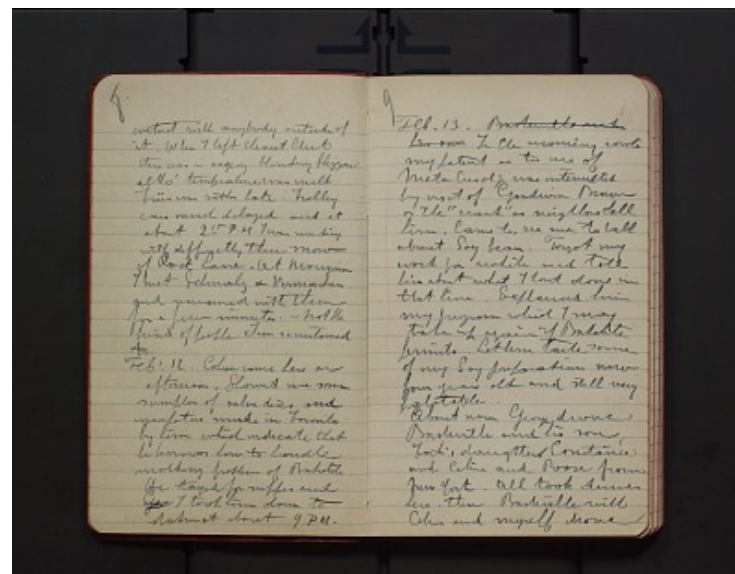 8.
contact with anybody outside of
it. When I left Chemist Club
there was a raging blinding
altho' temperature was mild
was rather late. Trolley
cars much delayed and at
about 2 P.M. I was wading
with difficulty thru snow
of Park Lane. At
I met &
and remained with them
for a few minutes. - Not the
kind of people I am accustomed
to.
Feb. 12. came here in
afternoon. Showed me some
samples of and
made in Toronto
by him which indicate that
he knows how to handle
molding problem of Bakelite
He stayed for supper and
I took him down to
about 9 P.M.
9
Feb. 13. Baskerville and
his son In the morning wrote
my patent on the use of
Meta Cresol; was interrupted
by visit of Goodwin Brown
or the "giant" as neighbors call
him. Came to see me to talk
about Soy bean. Forgot my
work for awhile and told
him about what I had done in
that line. Explained him
my program which I may
take up again if Bakelite
permits. Let him taste some
of my Soy preparations now
four years old and still very
palatable.
About noon George drove
Baskerville and his son,
daughter Constance
and Celine and from
New York. All took dinner
here. then Baskerville with
and myself drove